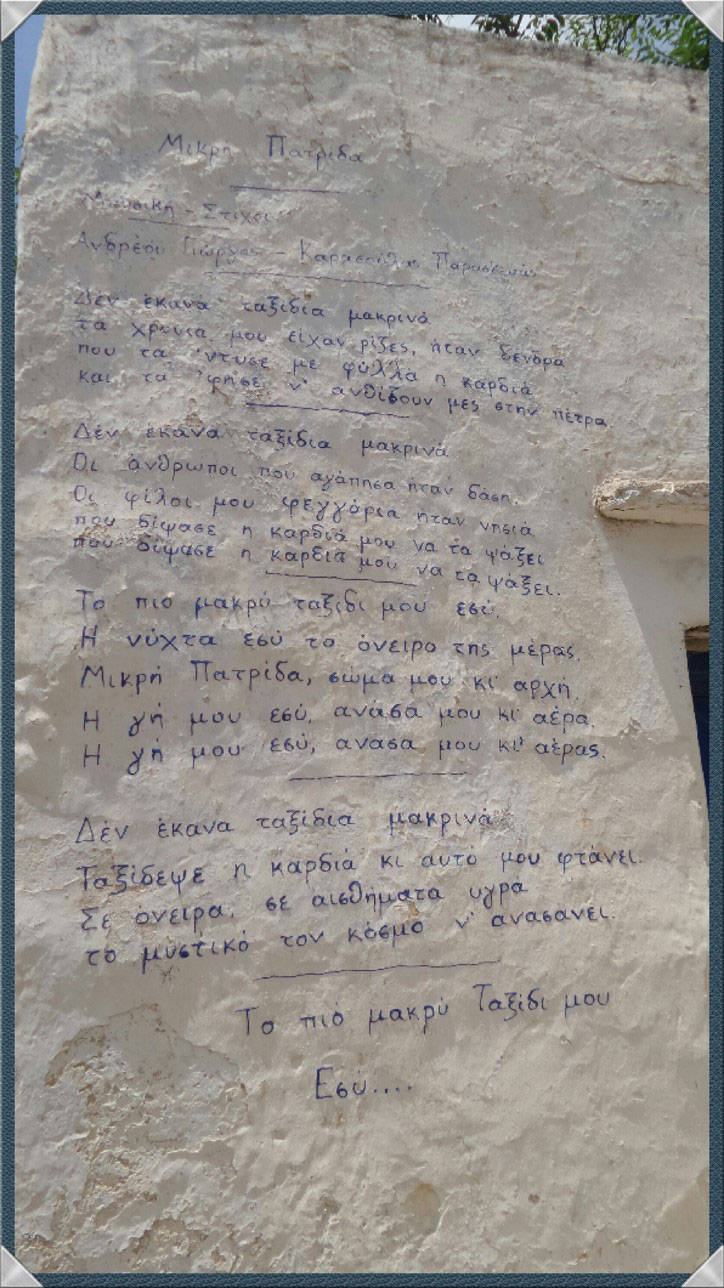 Μικρή Πατρίδα
Μουσική - Στίχοι
Ανδρέου Γιώργος - Καρασούλας Παρασκευάς
Δέν έκανα ταξίδια μακρινά
τα χρόνια μου είχαν ρίζες, ήταν δένδρα
που τα 'ντυσε με φύλλα η καρδιά
και τα 'φησε ν' ανθίζουν μες στην πέτρα.
Δέν έκανα ταξίδια μακρινά
Οι άνθρωποι που αγάπησα ήταν δάση.
Οι φίλοι μου φεγγάρια ήταν νησιά
που δίψασε η καρδιά μου να τα ψάξει
που δίψασε η καρδιά μου να τα ψάξει.
Το πιο μακρύ ταξίδι μου εσύ.
Η νύχτα εσύ το όνειρο της μέρας.
Μικρή Πατρίδα, σώμα μου κι' αρχή.
Η γή μου εσύ, ανάσα μου κι' αέρα.
Η γή μου εσύ, ανασα μου κι' αέρας.
Δέν έκανα ταξίδια μακρινά
Ταξίδεψε η καρδιά κι αυτό μου φτάνει.
Σε όνειρα, σε αισθήματα υγρά
το μυστικό τον κόσμο ν' ανασάνει.
Το πιό μακρύ Ταξίδι μου
Εσύ....